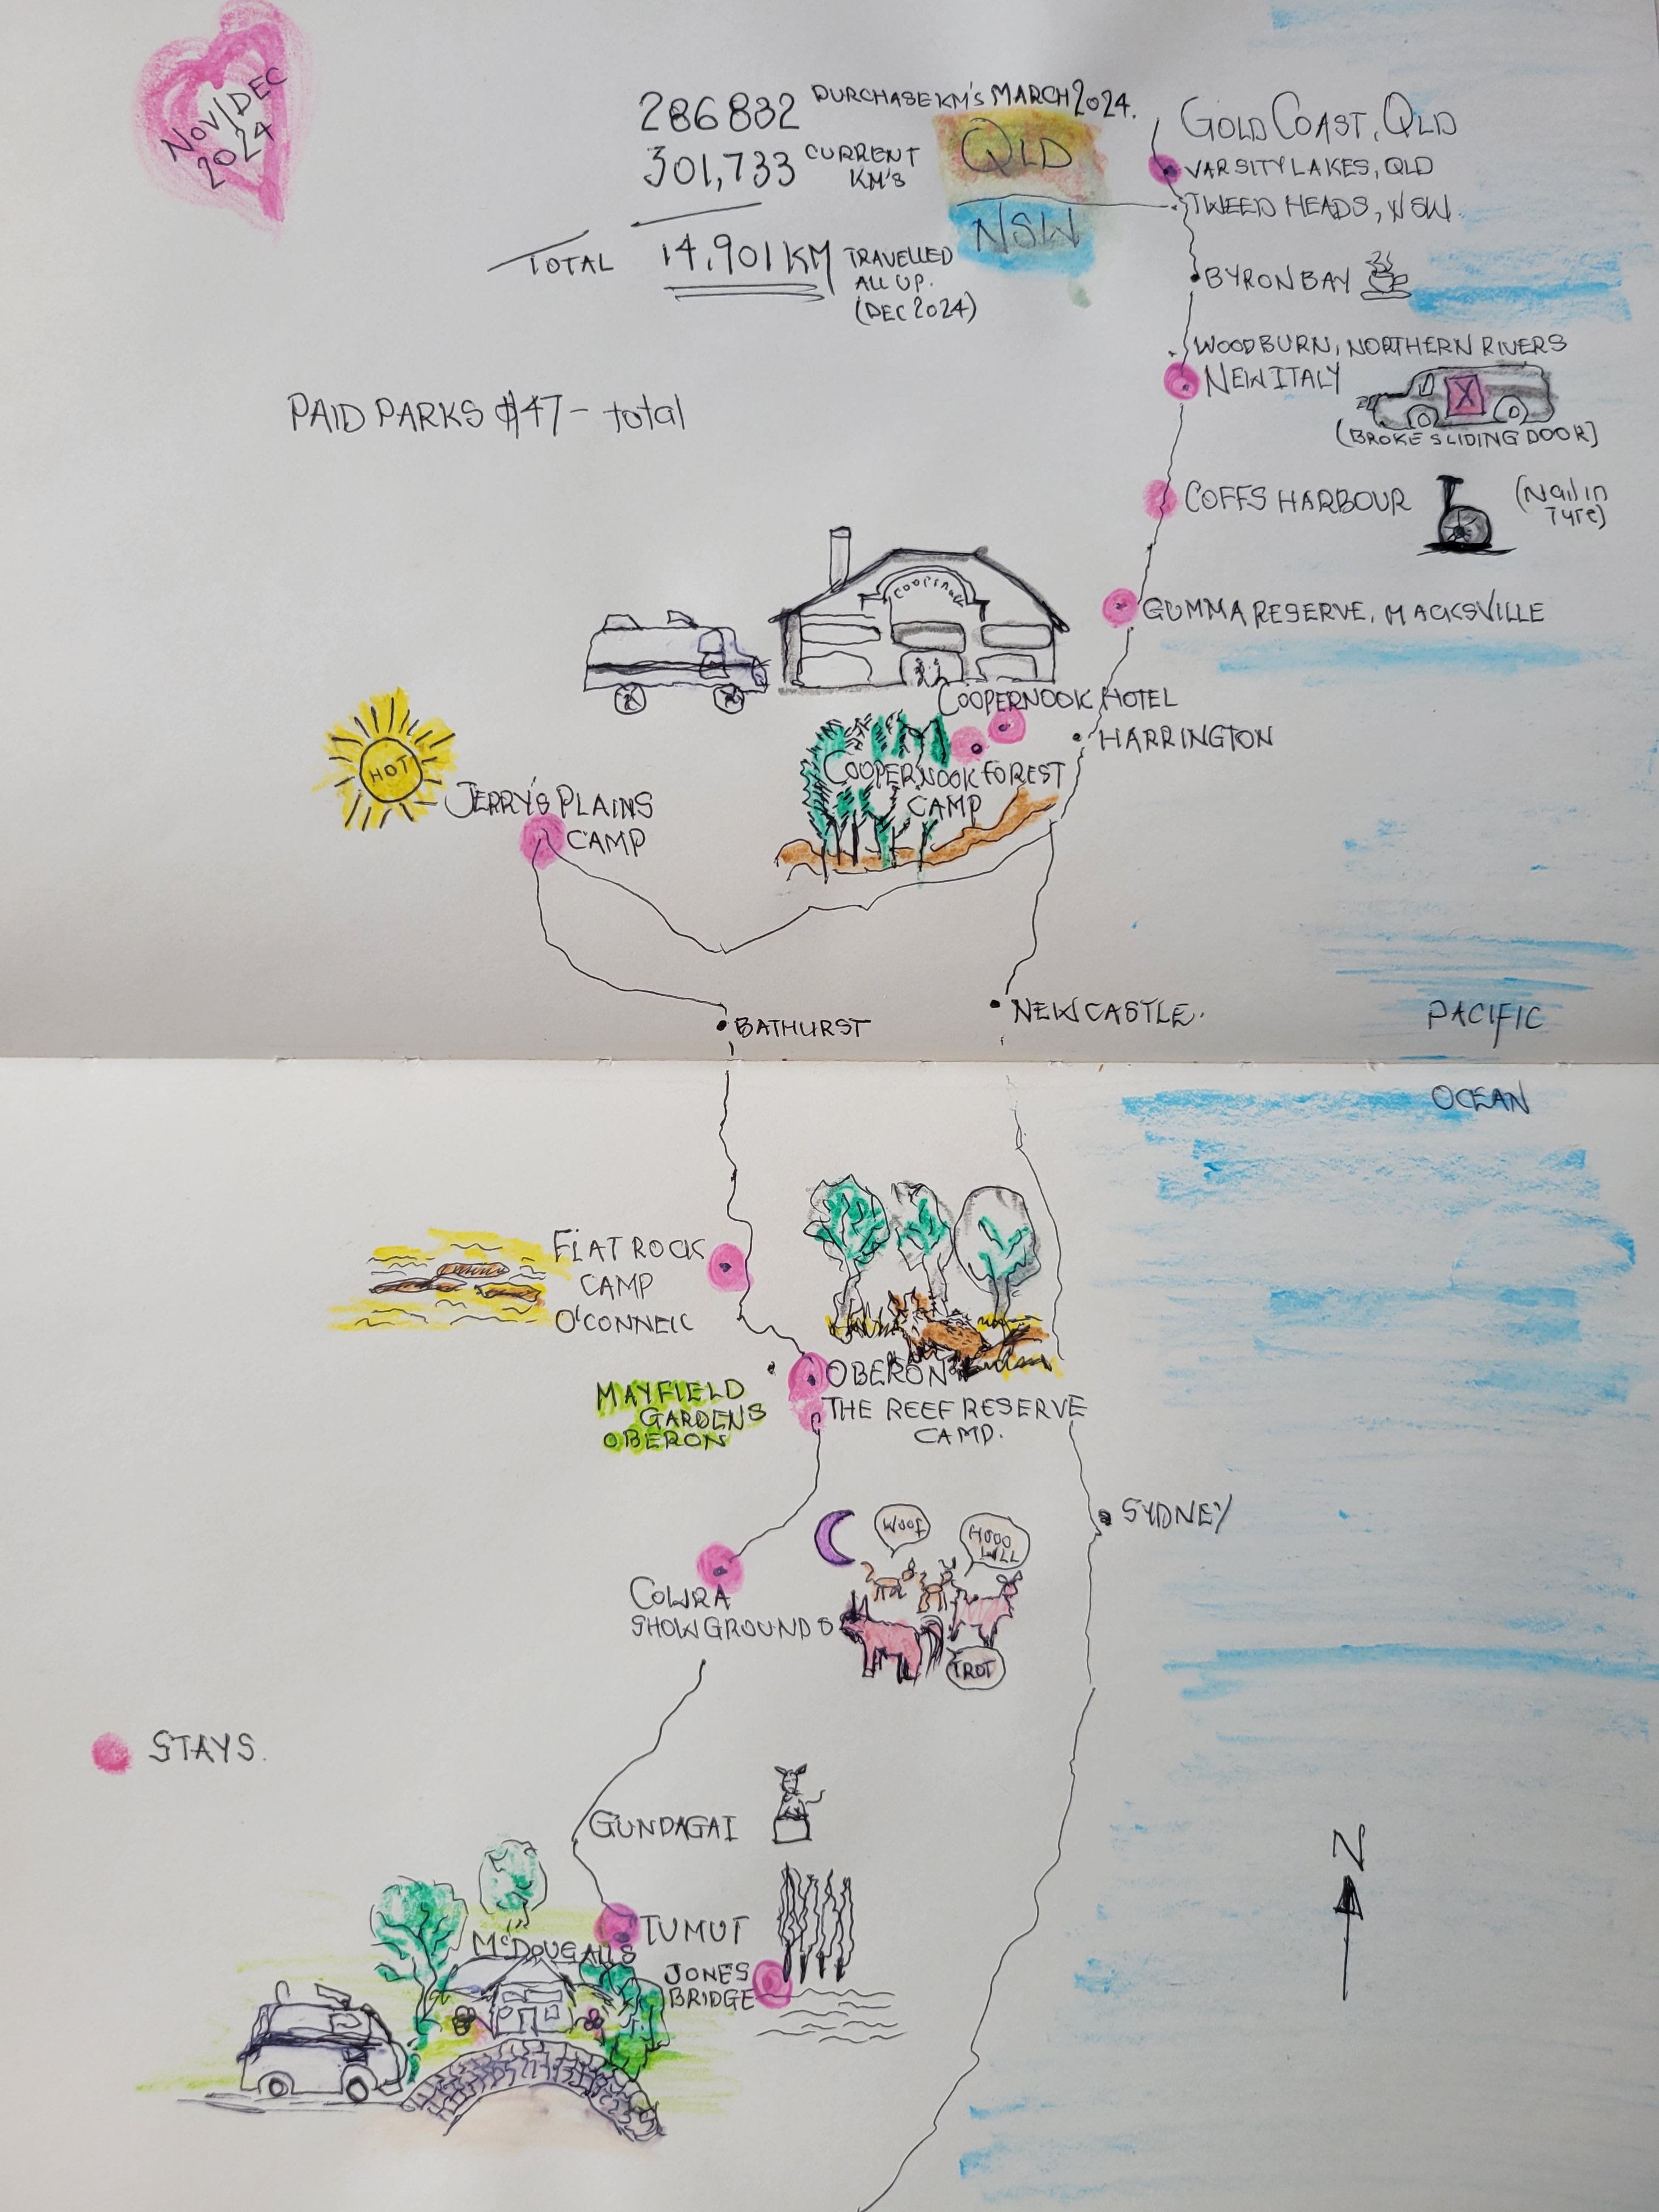 NOV/DEC
2024
286832 PURCHASE KM'S MARCH 2024.
301,733 CURRENT
KM'S
TOTAL 14,901 KM TRAVELLED
ALL UP.
(DEC 2024)
QLD
NSW
GOLD COAST, QLD
VARSITY LAKES, QLD
TWEED HEADS, NSW.
BYRON BAY
WOODBURN, NORTHERN RIVERS
NEW ITALY
X
(BROKE SLIDING DOOR)
PAID PARKS $47 - total
COFFS HARBOUR
(Nail in
Tyre)
GUMMA RESERVE, MACKSVILLE
COOPERNOOK HOTEL
HARRINGTON
COOPERNOOK FOREST
CAMP
HOT
JERRY'S PLAINS
CAMP
BATHURST
NEWCASTLE.
PACIFIC
OCEAN
FLAT ROCK
CAMP
O'CONNELL
OBERON
THE REEF RESERVE
CAMP.
MAYFIELD
GARDENS
OBERON
SYDNEY
Woof
TROT
COWRA
SHOWGROUNDS
STAYS.
GUNDAGAI
N
TUMUT
McDOUGALLS
JONES
BRIDGE